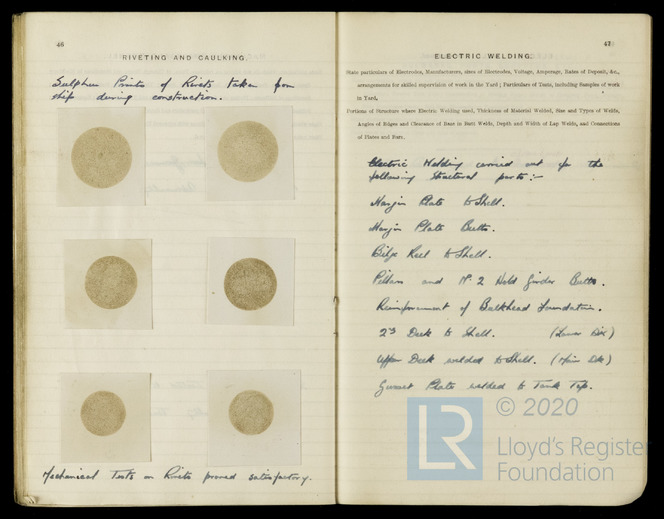 46
RIVETING AND CAULKING.
Sulphur Prints of Rivets taken from
ship during construction.
Mechanical Tests on Rivets proved satisfactory.
47
ELECTRIC WELDING.
State particulars of Electrodes, Manufacturers, sizes of Electrodes, Voltage, Amperage, Rates of Deposit, &c.,
arrangements for skilled supervision of work in the Yard; Particulars of Tests, including Samples of work
in Yard,
Portions of Structure where Electric Welding used, Thickness of Material Welded, Size and Types of Welds,
Angles of Edges and Clearance of Bars in Butt Welds, Depth and Width of Lap Welds, and Connections
of Plates and Bars.
Electric Welding carried out for the
following structural parts:-
Margin Plate to Shell.
Margin Plate Butts.
Bilge Keel to Shell.
Pillars and No. 2 Hold Girder Butts.
Reinforcement of Bulkhead Foundation.
2nd Deck to Shell. (Lower Dk)
Upper Deck welded to Shell. (Main Dk)
Gusset Plate welded to Tank Top.
LR
© 2020
Lloyd's Register
Foundation